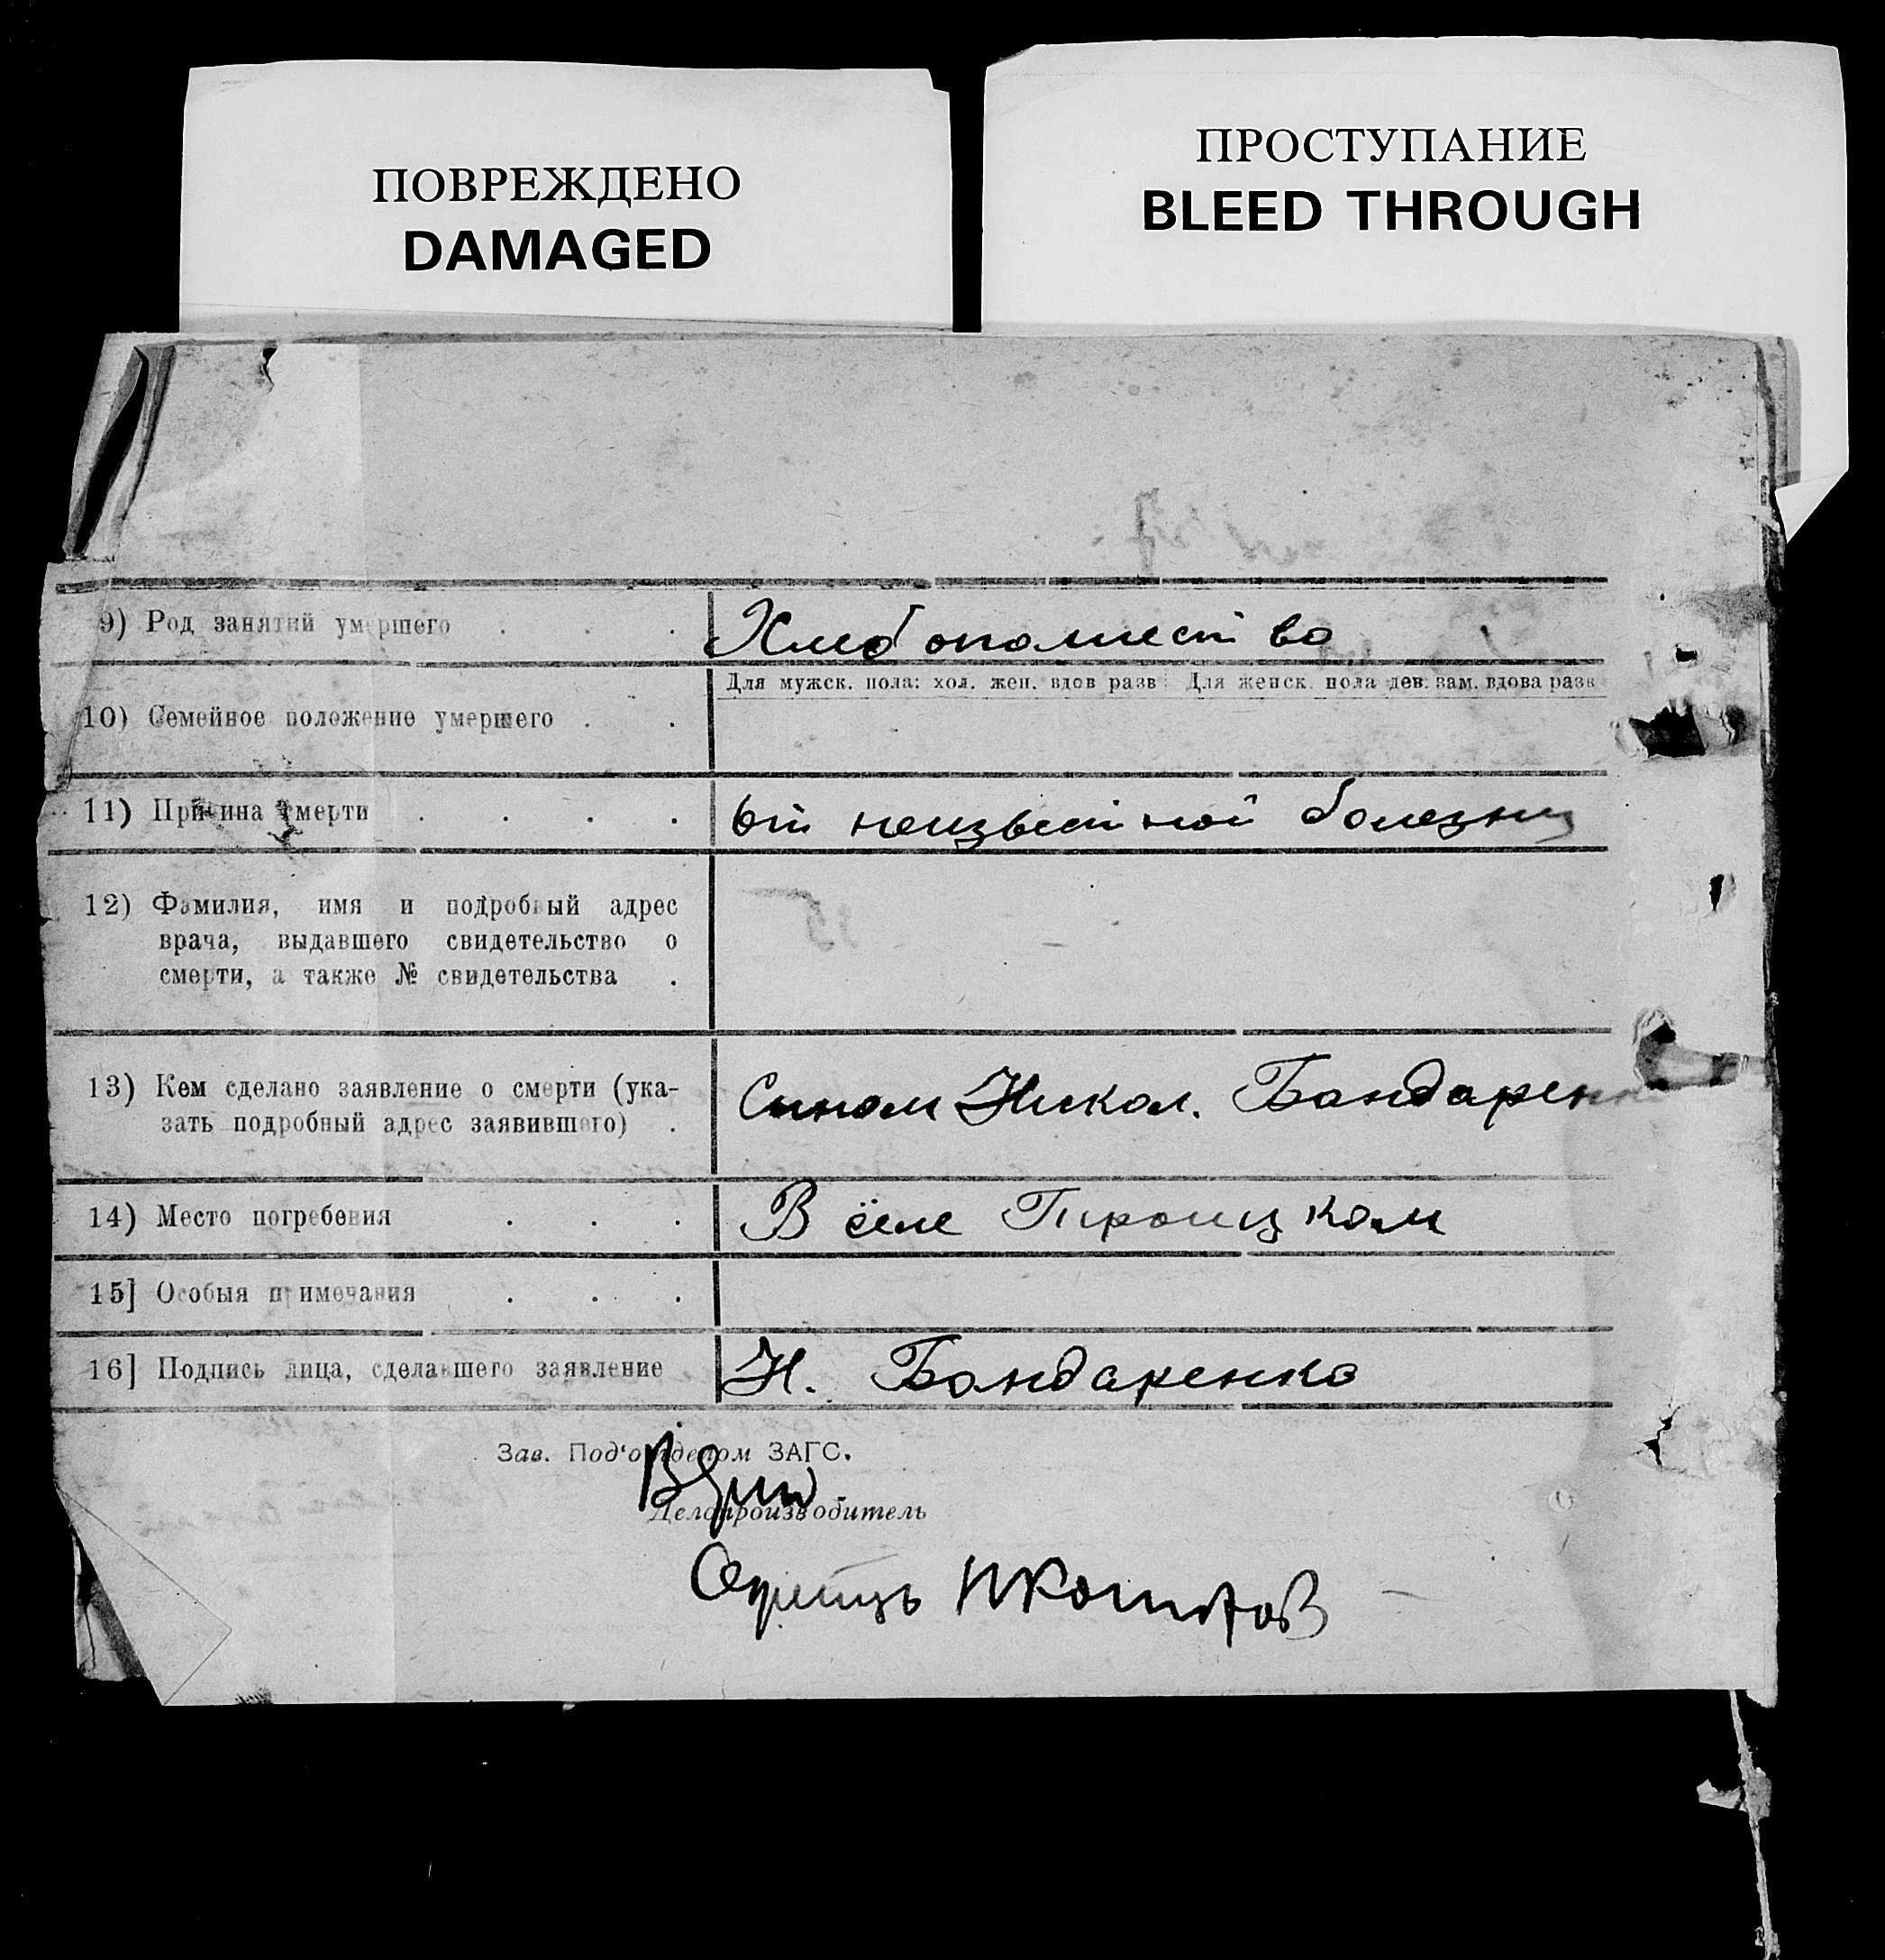 ПОВРЕЖДЕНО
DAMAGED
ПРОСТУПАНИЕ
BLEED THROUGH
9) Род занятий умершего . . . Хлебопашество
Для мужск. пола: хол. жен. вдов разв Для женск. пола дев. зам. вдова разв
10) Семейное положение умершего . .
11) Причина смерти . . . . От неизвестной болезни
12) Фамилия, имя и подробный адрес
врача, выдавшего свидетельство о
смерти, а также № свидетельства .
13) Кем сделано заявление о смерти (ука-
зать подробный адрес заявившего) . Сыном Никол. Бандаренк
14) Место погребения . . . В селе Троицком
15] Особыя примечания . . .
16] Подпись лица, сделавшего заявление Н. Бандаренко
Зав. Под'отделом ЗАГС.
Делопроизводитель